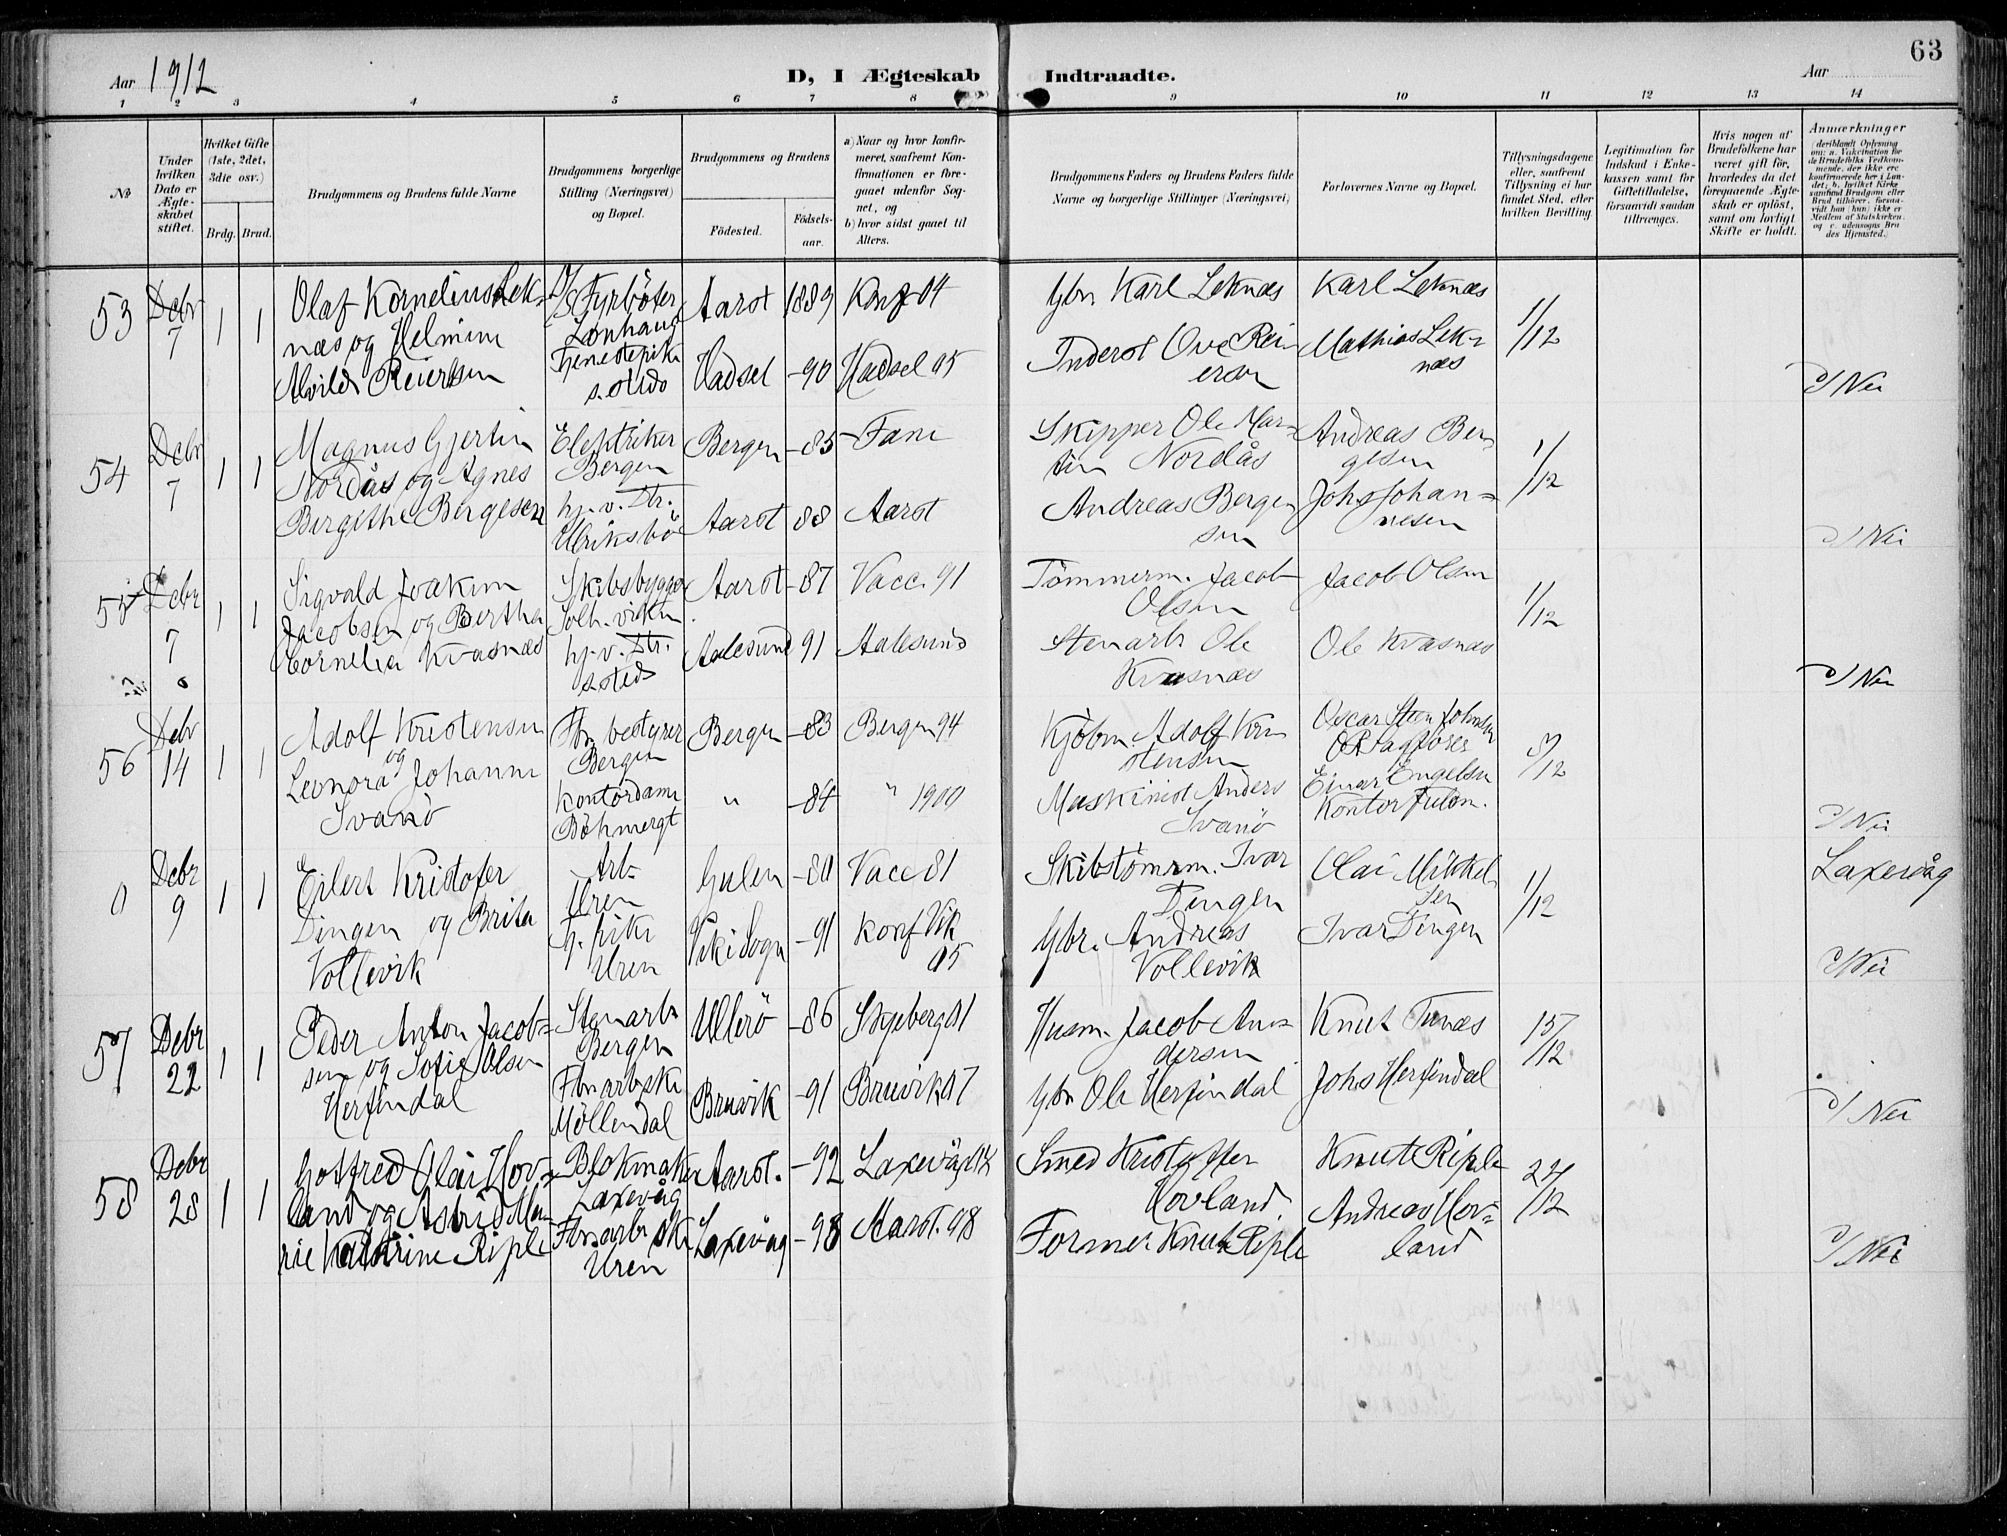 63
Aar 1912
D, I Ægteskab Indtraadte.
Aar
1 2 3 4 5 6 7 8 9 10 11 12 13 14
No
Under hvilken Dato er Ægteskabet stiftet.
Hvilket Gifte (1ste, 2det, 3die osv.)
Brdg. Brud.
Brudgommens og Brudens fulde Navne
Brudgommens borgerlige Stilling (Næringsvei) og Bopæl.
Brudgommens og Brudens
Födested.
Födsels-aar.
a) Naar og hvor konfirmeret, saafremt Konfirmationen er foregaaet udenfor Sognet, og
b) hvor sidst gaaet til Alters.
Brudgommens Faders og Brudens Faders fulde Navne og borgerlige Stillinger (Næringsvei)
Forlovernes Navne og Bopæl.
Tillysningsdagene eller, saafremt Tillysning ei har fundet Sted, efter hvilken Bevilling.
Legitimation for Indskud i Enkekassen samt for Giftetilladelse, forsaavidt saadan tiltrænges.
Hvis nogen af Brudefolkene har været gift för, hvorledes da det foregaaende Ægteskab er oplöst, samt om lovligt Skifte er holdt.
Anmærkninger (deriblandt Oplysning om: a. Vakcination for de Brudefolks Vedkommende, der ikke ere konfirmerede her i Landet; b. hvilket Kirkesamfund Brudgom eller Brud tilhörer, forsaavidt han (hun) ikke er Medlem af Statskirken, og c. udensogns Brudes Hjemsted.)
53 Debr 7 1 1
Olaf Kornelius Leknæs og Helmine Alvilde Reiersen
D/S Fyrböter Lönhaug
Tjenestepike s. steds
Aarst 1889 Konf 04
Hadsel -90 Hadsel 05
Gbr Karl Leknæs
Inderst Ove Reiersen
Karl Leknæs
Mathias Leknæs
1/12
c/ Nei
54 Debr 7 1 1
Magnus Gjertin Nordås og Agnes Bergithe Bergesen
Elektriker Bergen
hj. v. Dtr. Ulriksbö
Bergen -85 Fane
Aarst 88 Aarst
Skipper Ole Martin Nordås
Andreas Bergesen
Andreas Bergesen
Johs Johannesen
1/12
c/ Nei
55 Debr 7 1 1
Sigvald Joakim Jacobsen og Bertha Cornelia Kvasnæs
Skibsbygger Solh. viken
hj. v. Dtr. s. steds
Aarst -87 Vacc. 91
Aalesund 91 Aalesund
Tömmerm. Jacob Olsen
Stenarb. Ole Kvasnæs
Jacob Olsen
Ole Kvasnæs
1/12
c/ Nei
56 Debr 14 1 1
Adolf Kristensen og Leonora Johanne Svanö
Fbr. bestyrer Bergen
Kontordame Böhmergt
Bergen -83 Bergen 94
" -84 " 1900
Kjöbm. Adolf Kristensen
Maskinist Anders Svanö
Oscar Steen Johnsen
Einar Engelsen Kontorfulm.
8/12
c/ Nei
0 Debr 9 1 1
Eilert Kristofer Dingen og Brita Vollevik
Arb. Uren
Tj. pike Uren
Gulen -80 Vacc 81
Vik i Sogn -91 Konf Vik 05
Skibstömrm. Ivar Dingen
Gbr. Andreas Vollevik
Olai Mikkelsen
Ivar Dingen
1/12
Laxevåg
c/ Nei
57 Debr 22 1 1
Peder Anton Jacobsen og Sofie Olsen Herfindal
Stenarb. Bergen
Fbr arbske Möllendal
Ullerö -86 Skjeberg 01
Bruvik -91 Bruvik 07
Husm. Jacob Andersen
Gbr Ole Herfindal
Knut Tunæs
Johs Herfindal
15/12
c/ Nei
58 Debr 28 1 1
Gotfred Olai Hovland og Astrid Marie Kathrine Riple
Blokmaker Laxevåg
Fbr arb ske Uren
Aarst. -92 Laxevåg
Laxevåg -93 Aarst. 08
Smed Kristoffer Hovland.
Former Knut Riple
Knut Riple
Andreas Hovland
22/12
c/ Nei